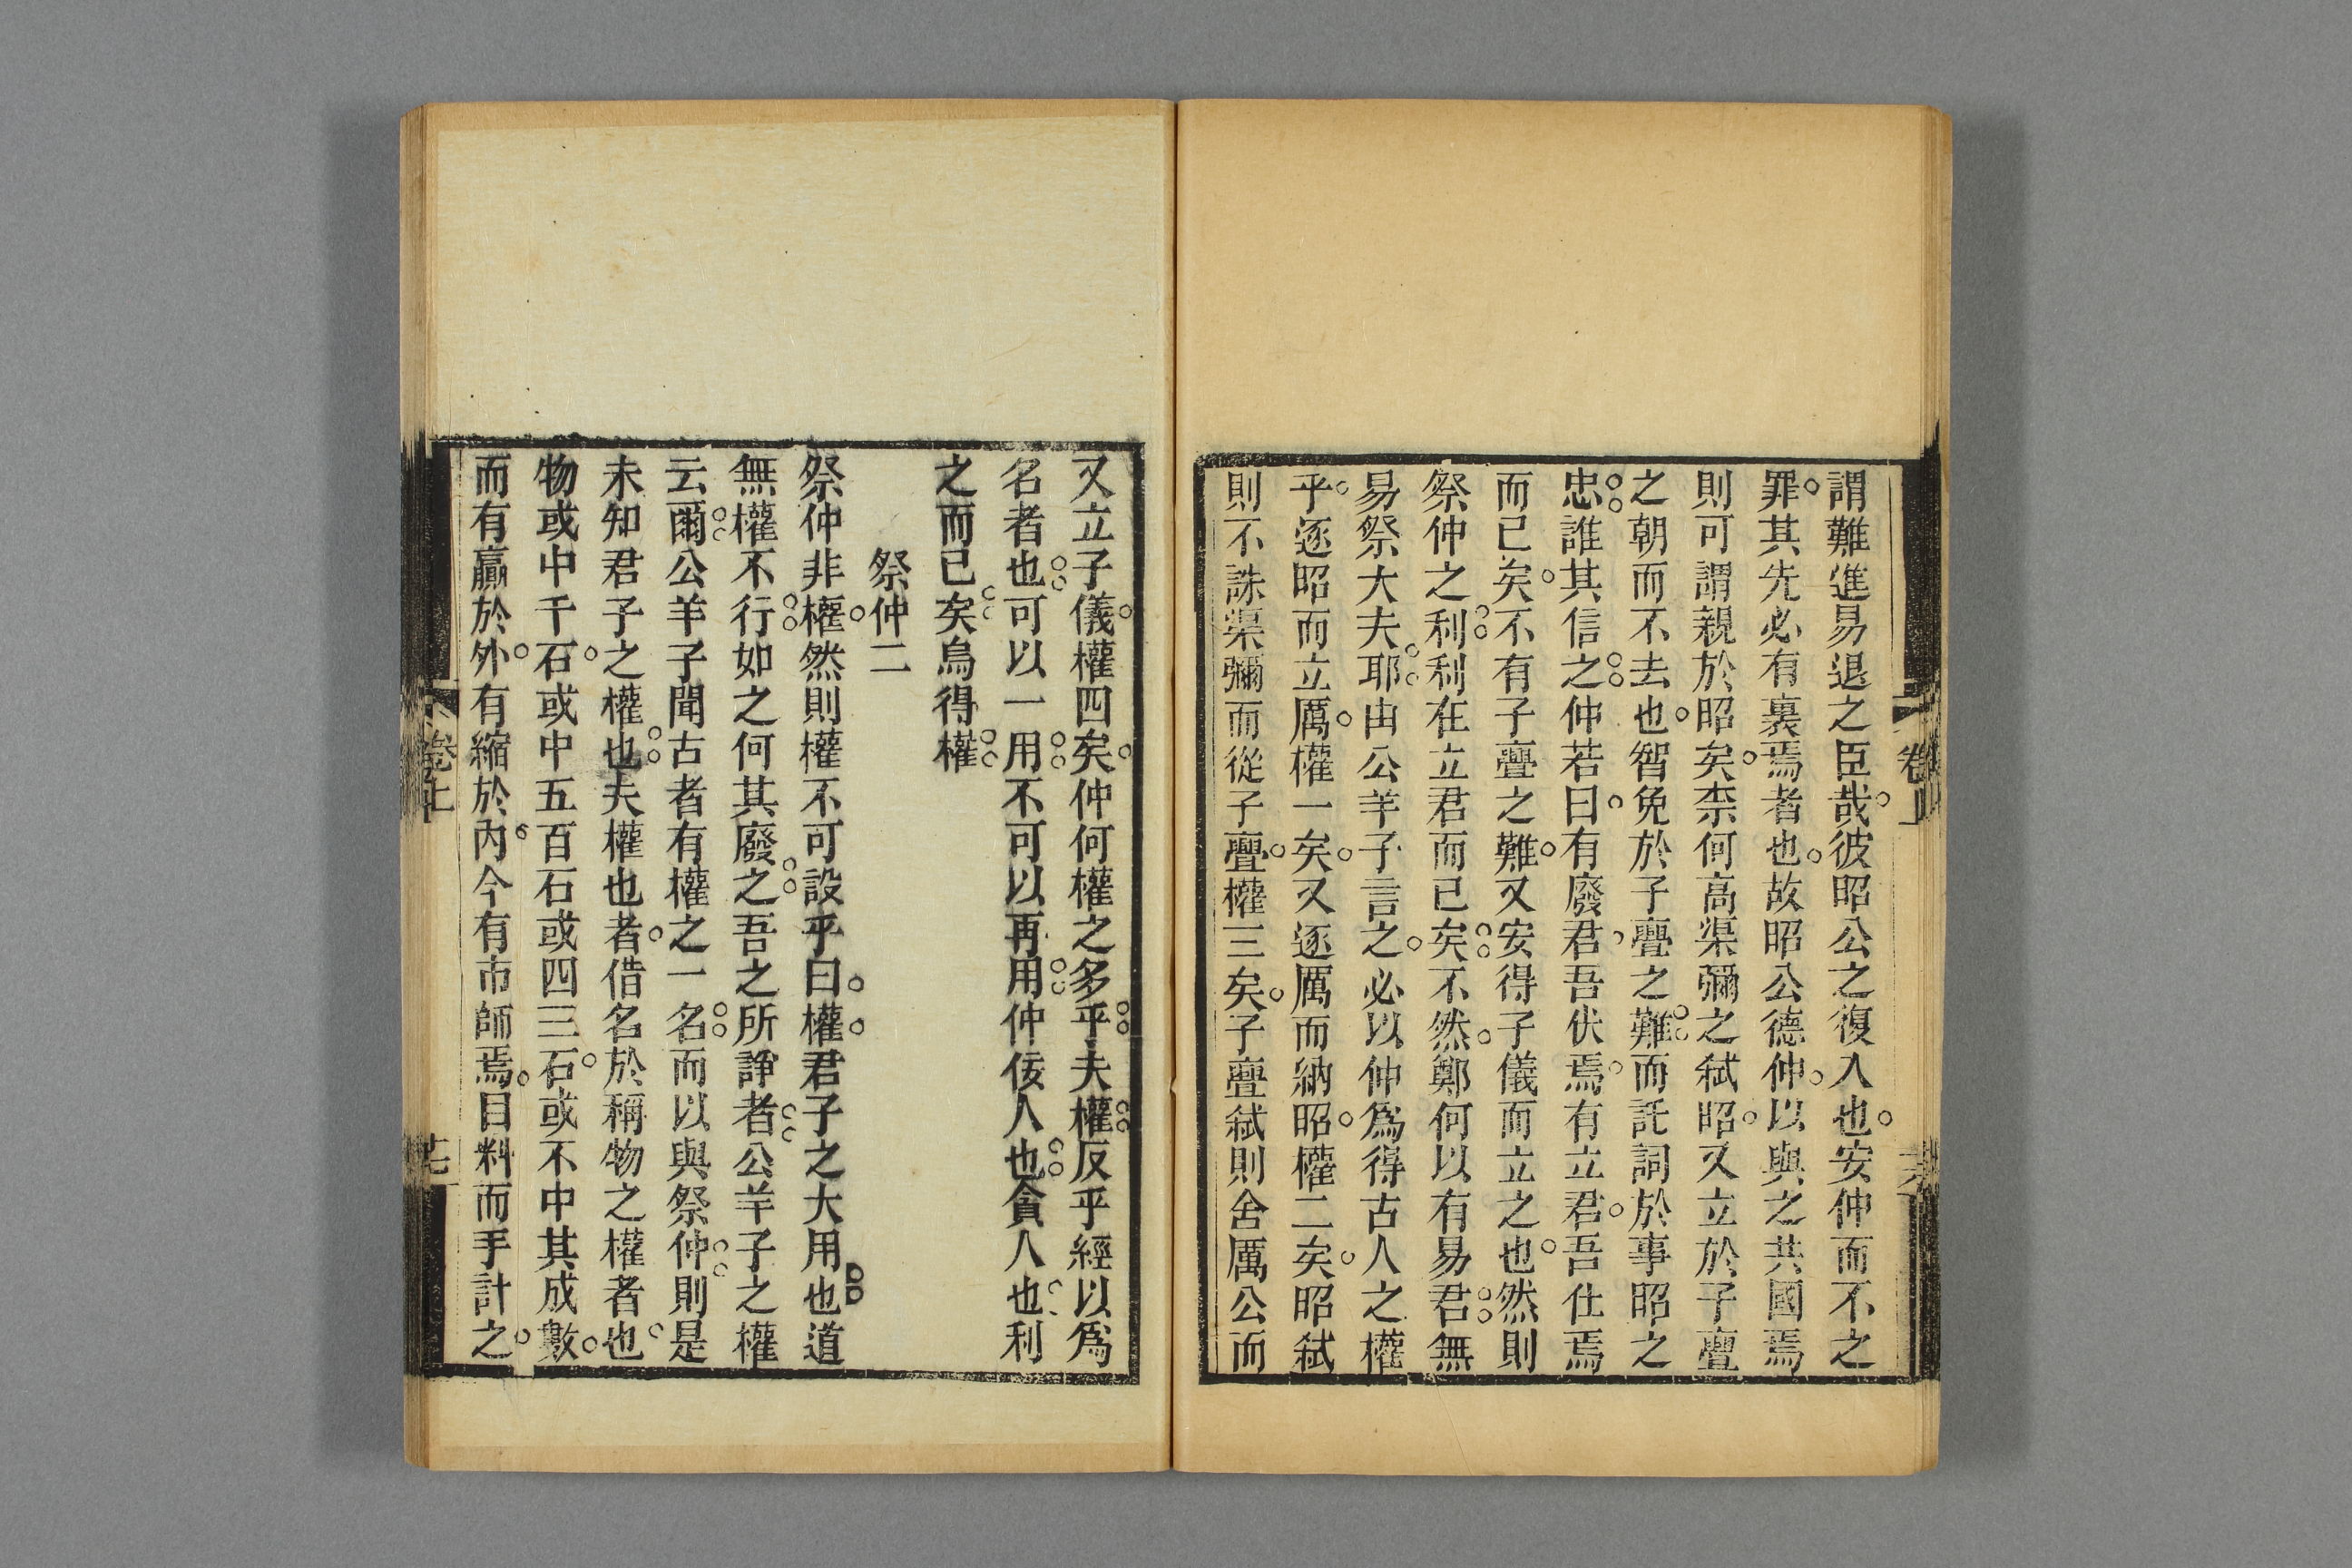 謂難進易退之臣哉彼昭公之復入也安仲而不之
罪其先必有裏焉者也故昭公德仲以與之共國焉
則可謂親於昭矣柰何高渠彌之弑昭又立於子亹
之朝而不去也智免於子亹之難而託詞於事昭之
忠誰其信之仲若曰有廢君吾伏焉有立君吾仕焉
而已矣不有子亹之難又安得子儀而立之也然則
祭仲之利利在立君而已矣不然鄭何以有易君無
易祭大夫耶由公羊子言之必以仲爲得古人之權
乎逐昭而立厲權一矣又逐厲而納昭權二矣昭弑
則不誅渠彌而從子亹權三矣子亹弑則舍厲公而
卷上
又立子儀權四矣仲何權之多乎夫權反乎經以爲
名者也可以一用不可以再用仲佞人也貪人也利
之而已矣烏得權
祭仲二
祭仲非權然則權不可設乎曰權君子之大用也道
無權不行如之何其廢之吾之所諍者公羊子之權
云爾公羊子聞古者有權之一名而以與祭仲則是
未知君子之權也夫權也者借名於稱物之權者也
物或中千石或中五百石或四三石或不中其成數
而有贏於外有縮於內今有市師焉目料而手計之
卷上
十七